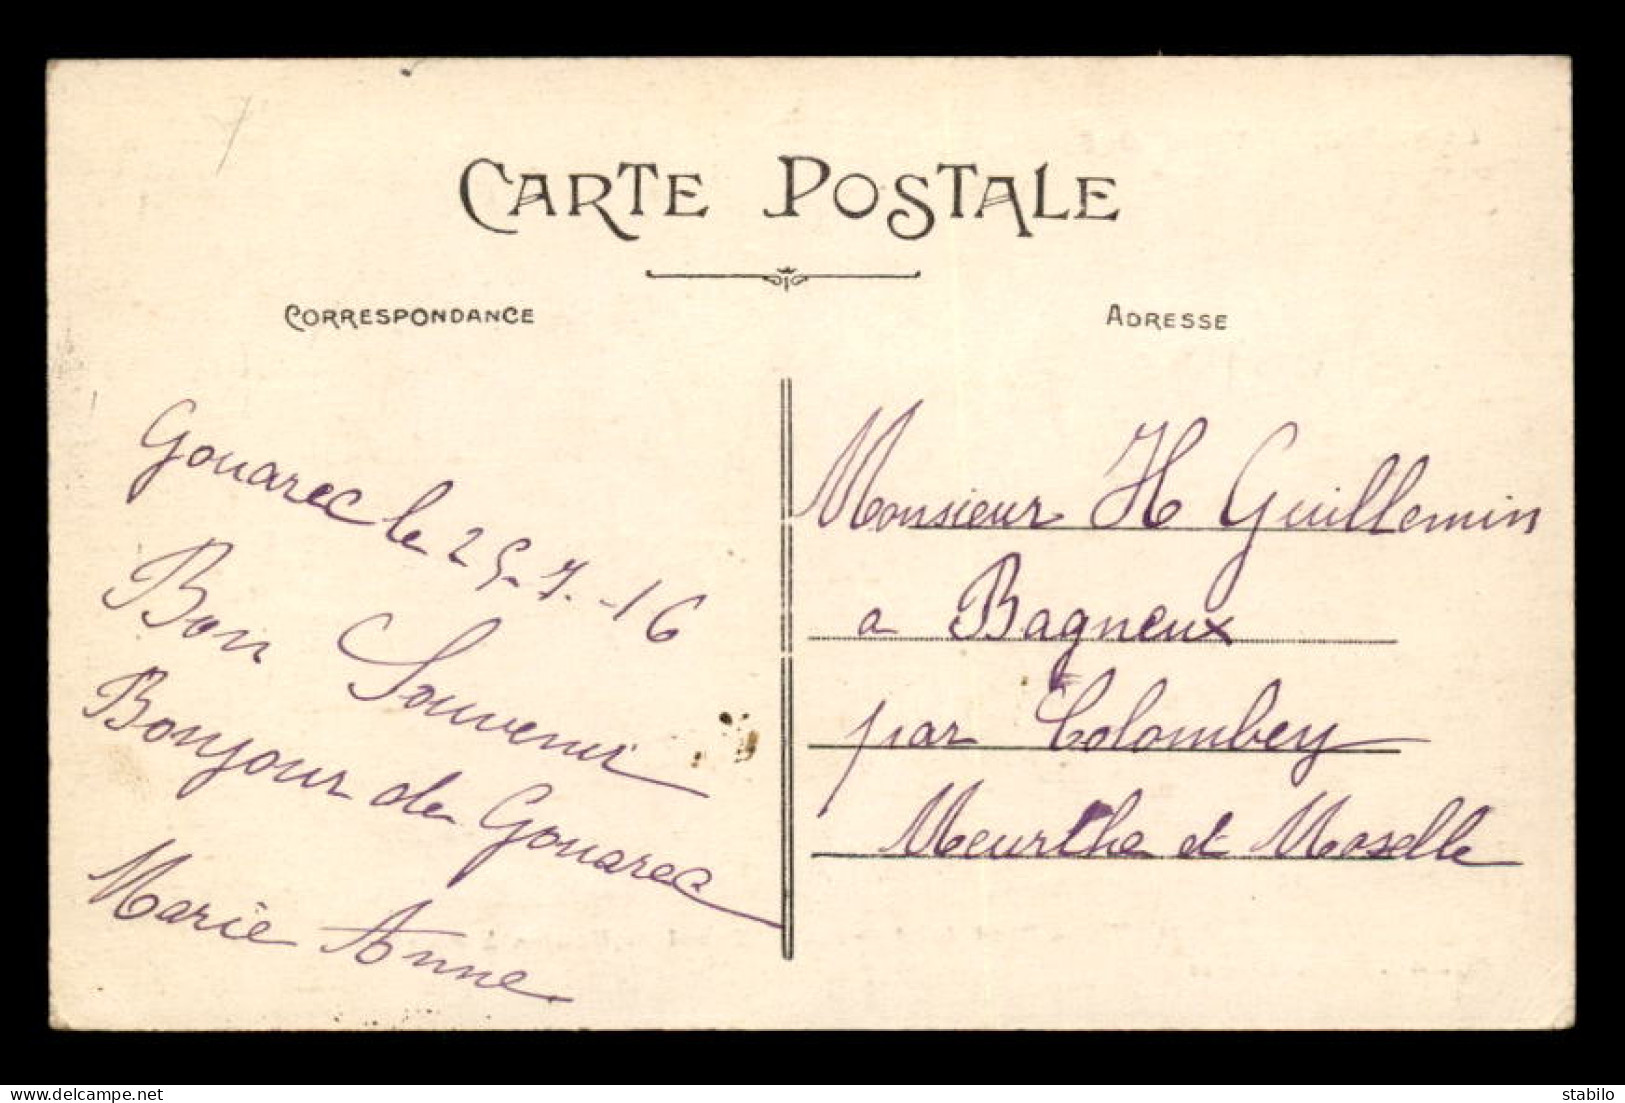 CARTE POSTALE
CORRESPONDANCE
ADRESSE
Gouarec le 25-7.-16
Bon Souvenir
Bonjour de Gouarec
Marie Anne
Monsieur H Guillemin
a Bagneux
par Colombey
Meurthe et Moselle
stabilo
www.delcampe.net